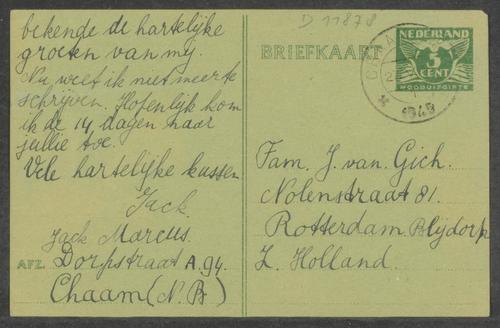 D 11878
bekende de hartelijke
groeten van my.
Nu weet ik niet meer te
schrijven. Hopenlijk kom
ik de 14 dagen naar
jullie toe.
Vele hartelijke kussen
Jack.
Jack Marcus.
AFZ. Dorpstraat A.94.
Chaam (N.B)
BRIEFKAART
NEDERLAND
5
CENT
NOODUITGIFTE
1943
Fam. J. van Gich.
Nolenstraat 81.
Rotterdam Blijdorp
Z. Holland.